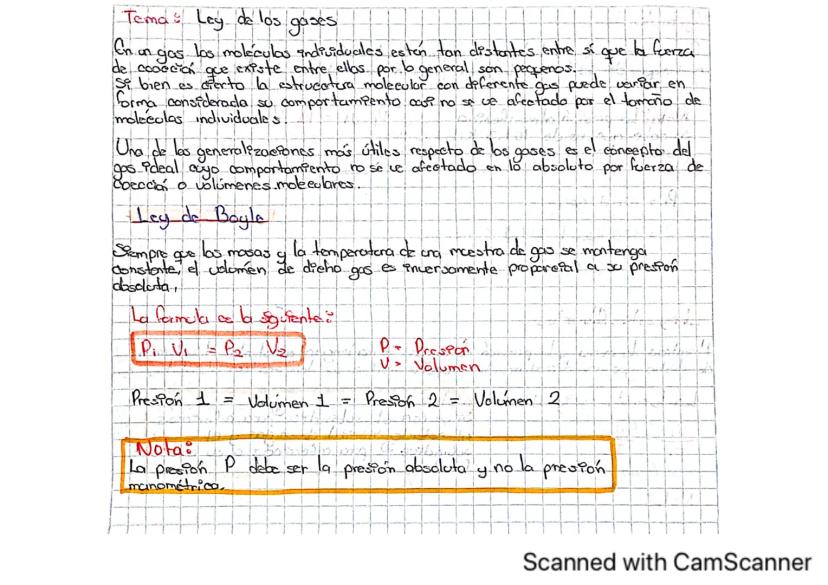 Tema: Ley de los gases
En un gas las moléculas individuales están tan distantes entre sí que la fuerza
de cococión que existe entre ellas por lo general son pequeños.
Si bien es cierto la estrucotura molecular con diferente gas puede variar en
forma considerada su comportamiento casi no se ve afectado por el tamaño de
moléculas individuales.
Una de las generalizaciones más útiles respecto de los gases es el concepto del
gas ideal cuyo comportamiento no se ve afectado en lo absoluto por fuerza de
cococión o volúmenes moleculares.
Ley de Boyle
Siempre que las masas y la temperatura de una muestra de gas se mantenga
constante, el volumén de dicho gas es inversamente proporcial a su presión
absoluta,
La formula es la siguiente:
P₁ V₁ = P₂ V₂
P = Presión
V = Volumen
Presión 1 = Volúmen 1 = Presión 2 = Volúmen 2
Nota:
La presión P debe ser la presión absoluta y no la presión
manométrica.
Scanned with CamScanner